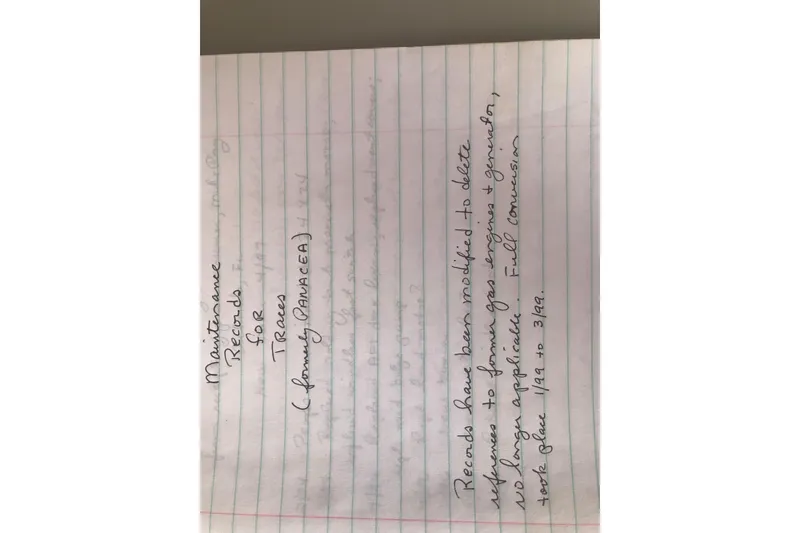 Maintenance
Records
for
TRaces
(formerly PANACEA)
Records have been modified to delete
references to former gas engines + generator,
no longer applicable. Full conversion
took place 1/99 to 3/99.